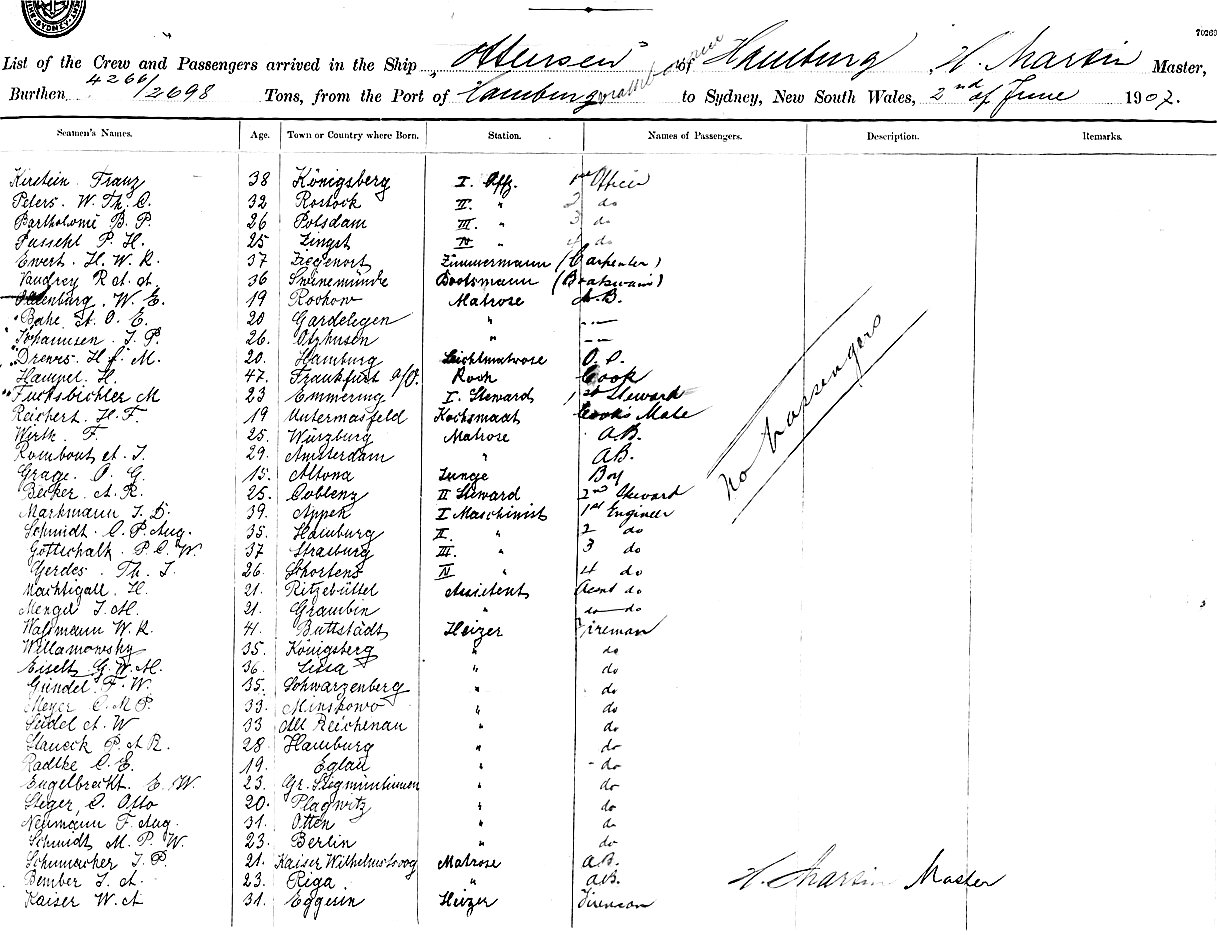 SYDNEY
70260
List of the Crew and Passengers arrived in the Ship „Ottensen" of Hamburg H. Martin Master,
Burthen 4266/2698 Tons, from the Port of Hamburg to Sydney, New South Wales, 2nd of June 1907.
Seamen's Names. Age. Town or Country where Born. Station. Names of Passengers. Description. Remarks.
Kirstein Franz 38 Königsberg I. Offz. 1st Officer
Peters. W. Th. C. 32 Rostock II. " 2 do
Bartholomé B. P. 26 Potsdam III. " 3 do
Passehl P. H. 25 Zingst IV " 4 do
Ewert. H. W. R. 37 Ziegenort Zimmermann (Carpenter)
Vandrey R A. A. 36 Swinemünde Bootsmann (Boatswain)
Oldenburg. W. E. 19 Rochow Matrose A.B.
Bahe A. O. E. 20 Gardelegen " -"-
Johannsen. J. P. 26. " -"-
Drewes. H. C. M. 20. Hamburg Leichtmatrose O. S.
Hampel. H. 47. Frankfurt a/O. Koch Cook
Fuchsbichler M 23 Emmering I. Steward 1st Steward
Reichert. H. F. 19 Untermasfeld Kochsmaat Cook's Mate
Wirth. F. 25. Würzburg Matrose AB.
Rombout. A. J. 29. Amsterdam " AB.
Grage. O. G. 15. Altona Junge Boy
Becker. A. R. 25. Coblenz II Steward 2nd Steward
Markmann J. D. 39. Appen I Maschinist 1st Engineer
Schmidt. C. P. Aug. 35. Hamburg II. " 2 do
Gottschalk. P. C. W. 37 Strasburg III. " 3 do
Gerdes. Th. J. 26. Schortens IV " 4 do
Nachtigall. H. 21. Ritzebüttel Assistent Assnt do
Mengel J. H. 21. Grambin " do do
Walsmann W. R. 41. Buttstädt Heizer Fireman
Willamowsky 35. Königsberg " do
Eiselt. G. W. M. 36. Lissa " do
Gündel. F. W. 35. Schwarzenberg " do
Meyer C. M. P. 33. Minskowo " do
Seidel A. W 33 Alt Reichenau " do
Staueck P. A R. 28. Hamburg " do
Radtke C. E. 19. Eylau " do
Engelbrecht. E. W. 23. Gr. " do
Steger, C. Otto 20. Plagwitz " do
Neumann F. Aug. 31. Otten " do
Schmidt M. P. W. 23. Berlin " do
Schumacher J. P. 21. Kaiser Wilhelms Koog Matrose A.B.
Bember J. A. 23. Riga " A.B.
Kaiser W. A 31. Eggesin Heizer Fireman
No Passengers
H. Martin Master